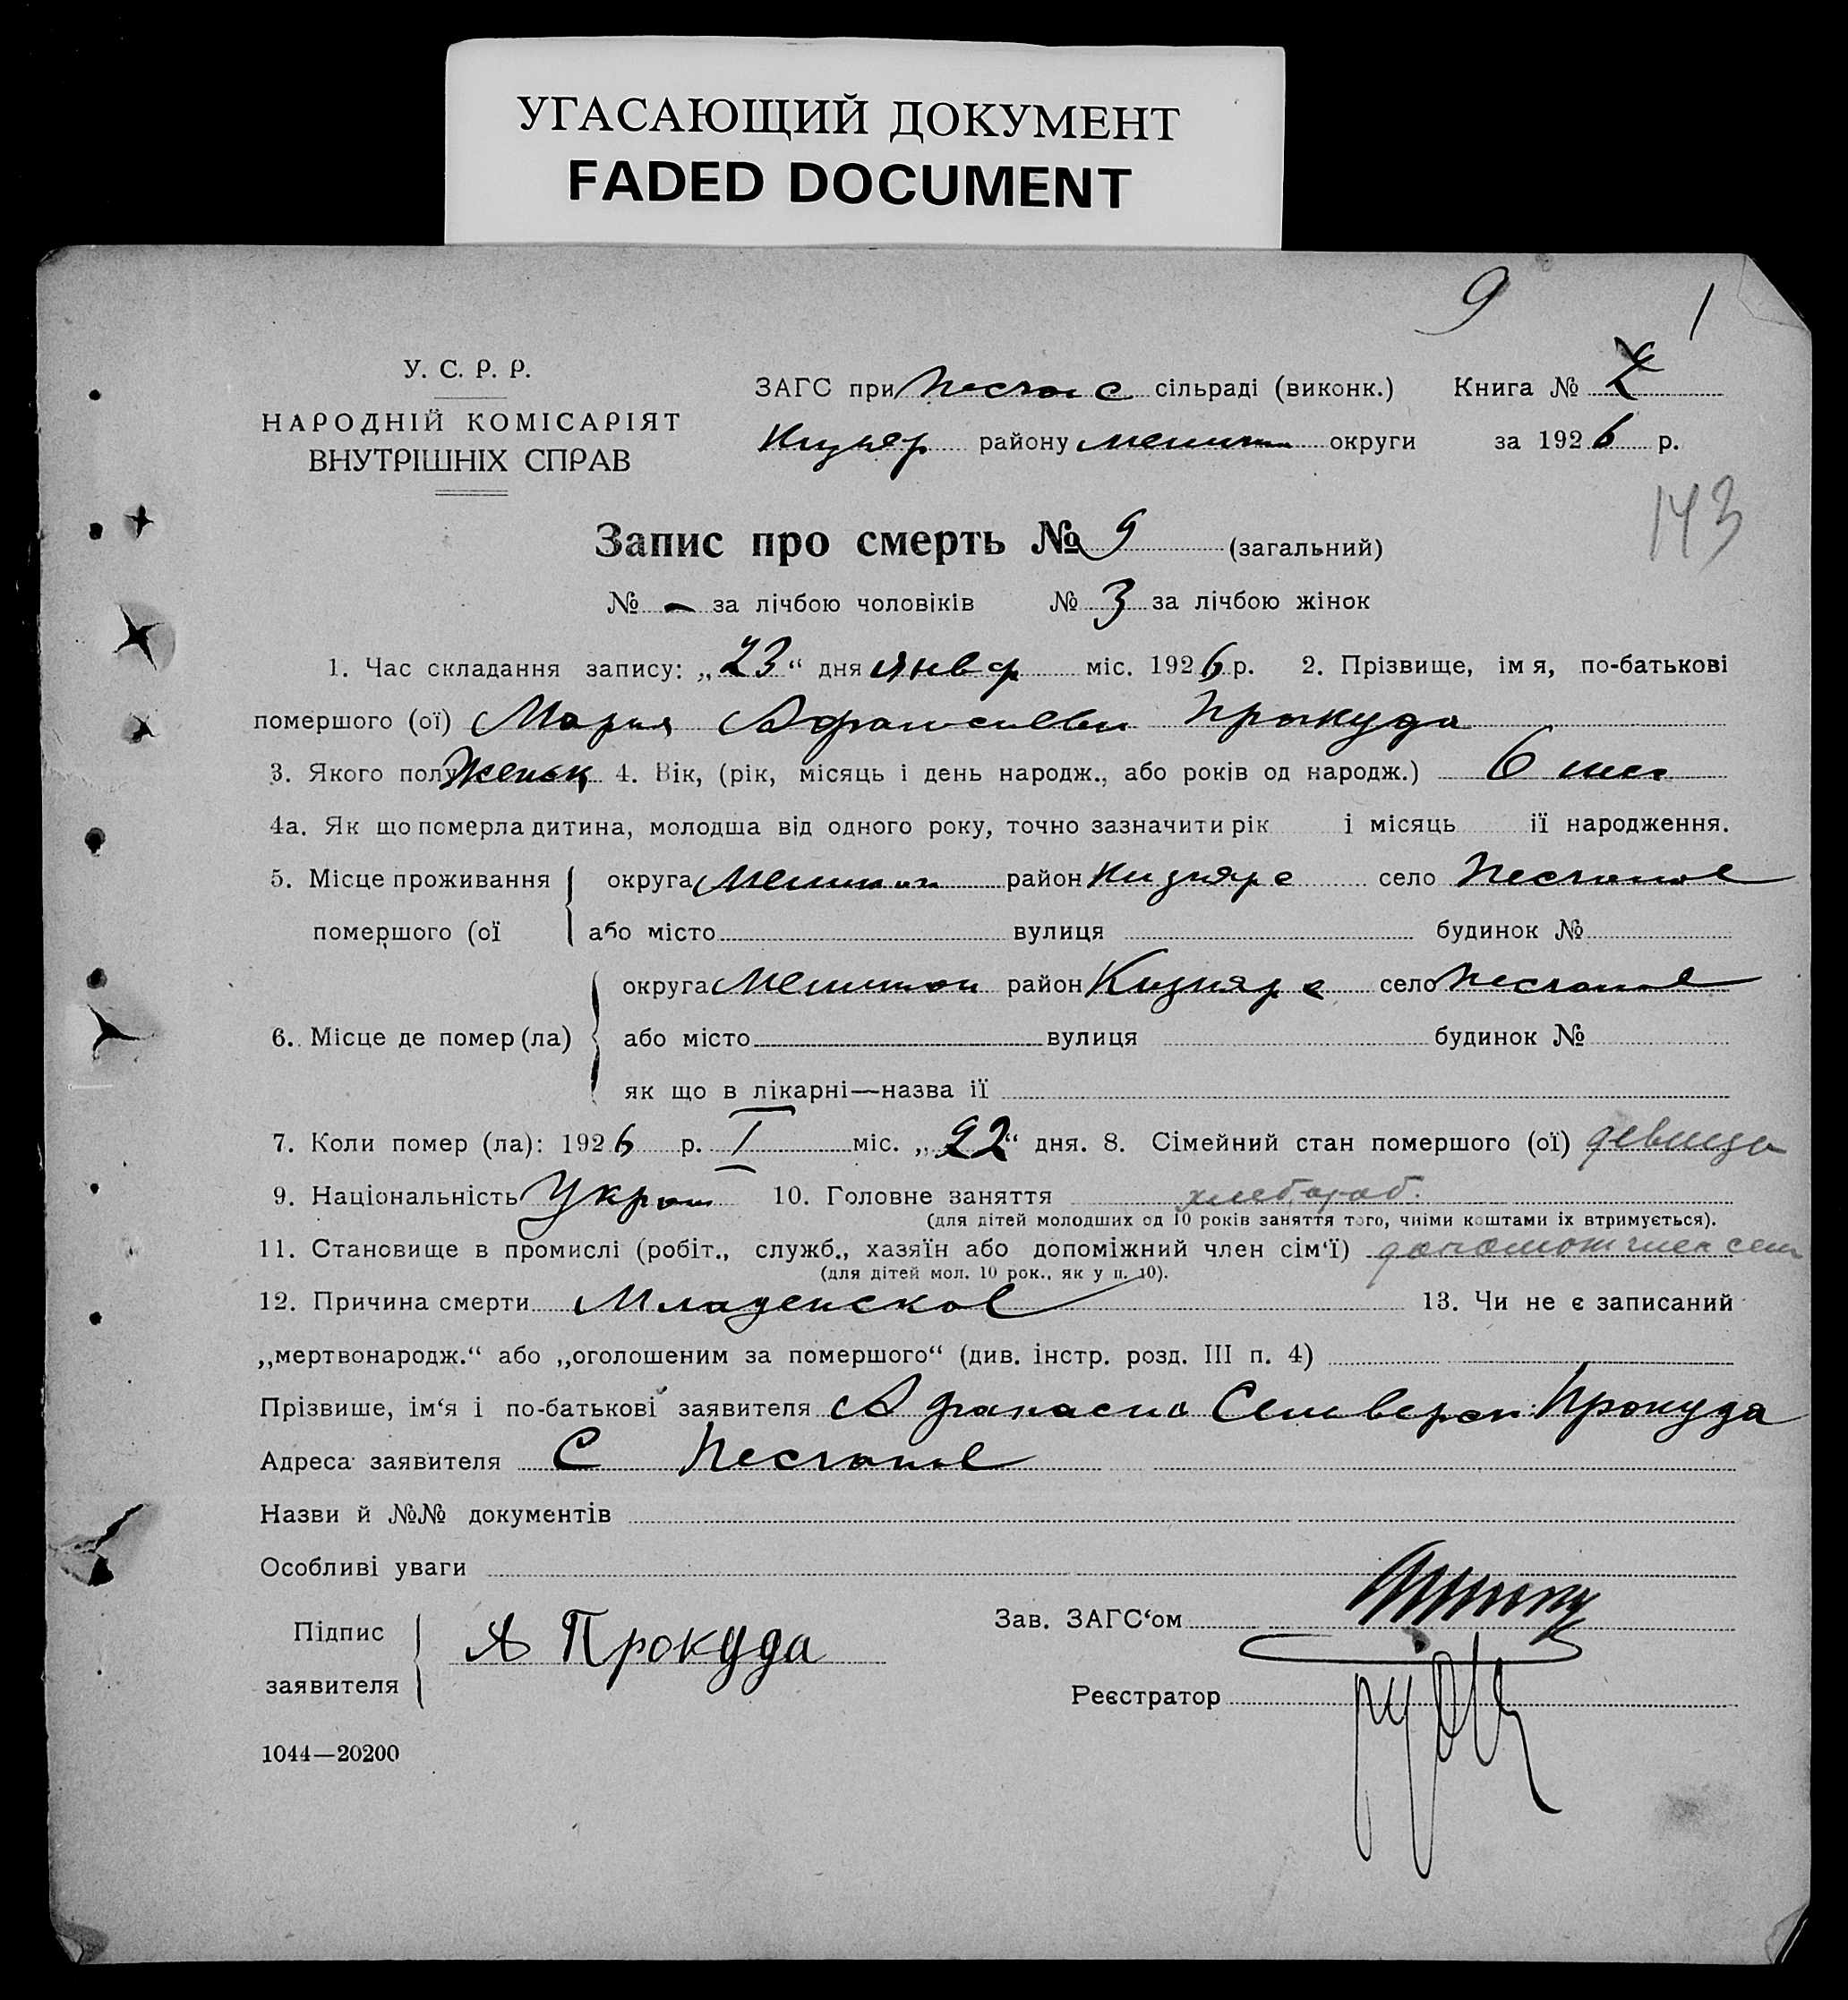 УГАСАЮЩИЙ ДОКУМЕНТ
FADED DOCUMENT
9 1
У. С. Р. Р.
НАРОДНІЙ КОМІСАРІЯТ
ВНУТРІШНІХ СПРАВ
ЗАГС при сільраді (виконк.) Книга №
району округи за 1926 р.
143
Запис про смерть № 9 (загальний)
№ - за лічбою чоловіків № 3 за лічбою жінок
1. Час складання запису: „23“ дня январ міс. 1926 р. 2. Прізвище, імя, по-батькові
помершого (ої) Мария Афанасиевн Прокуда
3. Якого полу Женск 4. Вік, (рік, місяць і день народж., або років од народж.) 6 мес
4а. Як що померла дитина, молодша від одного року, точно зазначити рік і місяць її народження.
5. Місце проживання округа район село Песчаное
помершого (ої або місто вулиця будинок №
округа район село Песчаное
6. Місце де помер (ла) або місто вулиця будинок №
як що в лікарні—назва її
7. Коли помер (ла): 1926 р. I міс. „22“ дня. 8. Сімейний стан помершого (ої) девица
9. Національність Украин 10. Головне заняття хлебороб.
(для дітей молодших од 10 років заняття того, чиїми коштами їх втримується).
11. Становище в промислі (робіт., служб., хазяїн або допоміжний член сім‘ї) допомож член сем
(для дітей мол. 10 рок., як у п. 10).
12. Причина смерти Младенское 13. Чи не є записаний
„мертвонародж.“ або „оголошеним за помершого“ (див. інстр. розд. III п. 4)
Прізвише, ім‘я і по-батькові заявителя Афанасий Прокуда
Адреса заявителя С Песчаное
Назви й №№ документів
Особливі уваги
Підпис
заявителя
А Прокуда
Зав. ЗАГС‘ом
Реєстратор
1044—20200